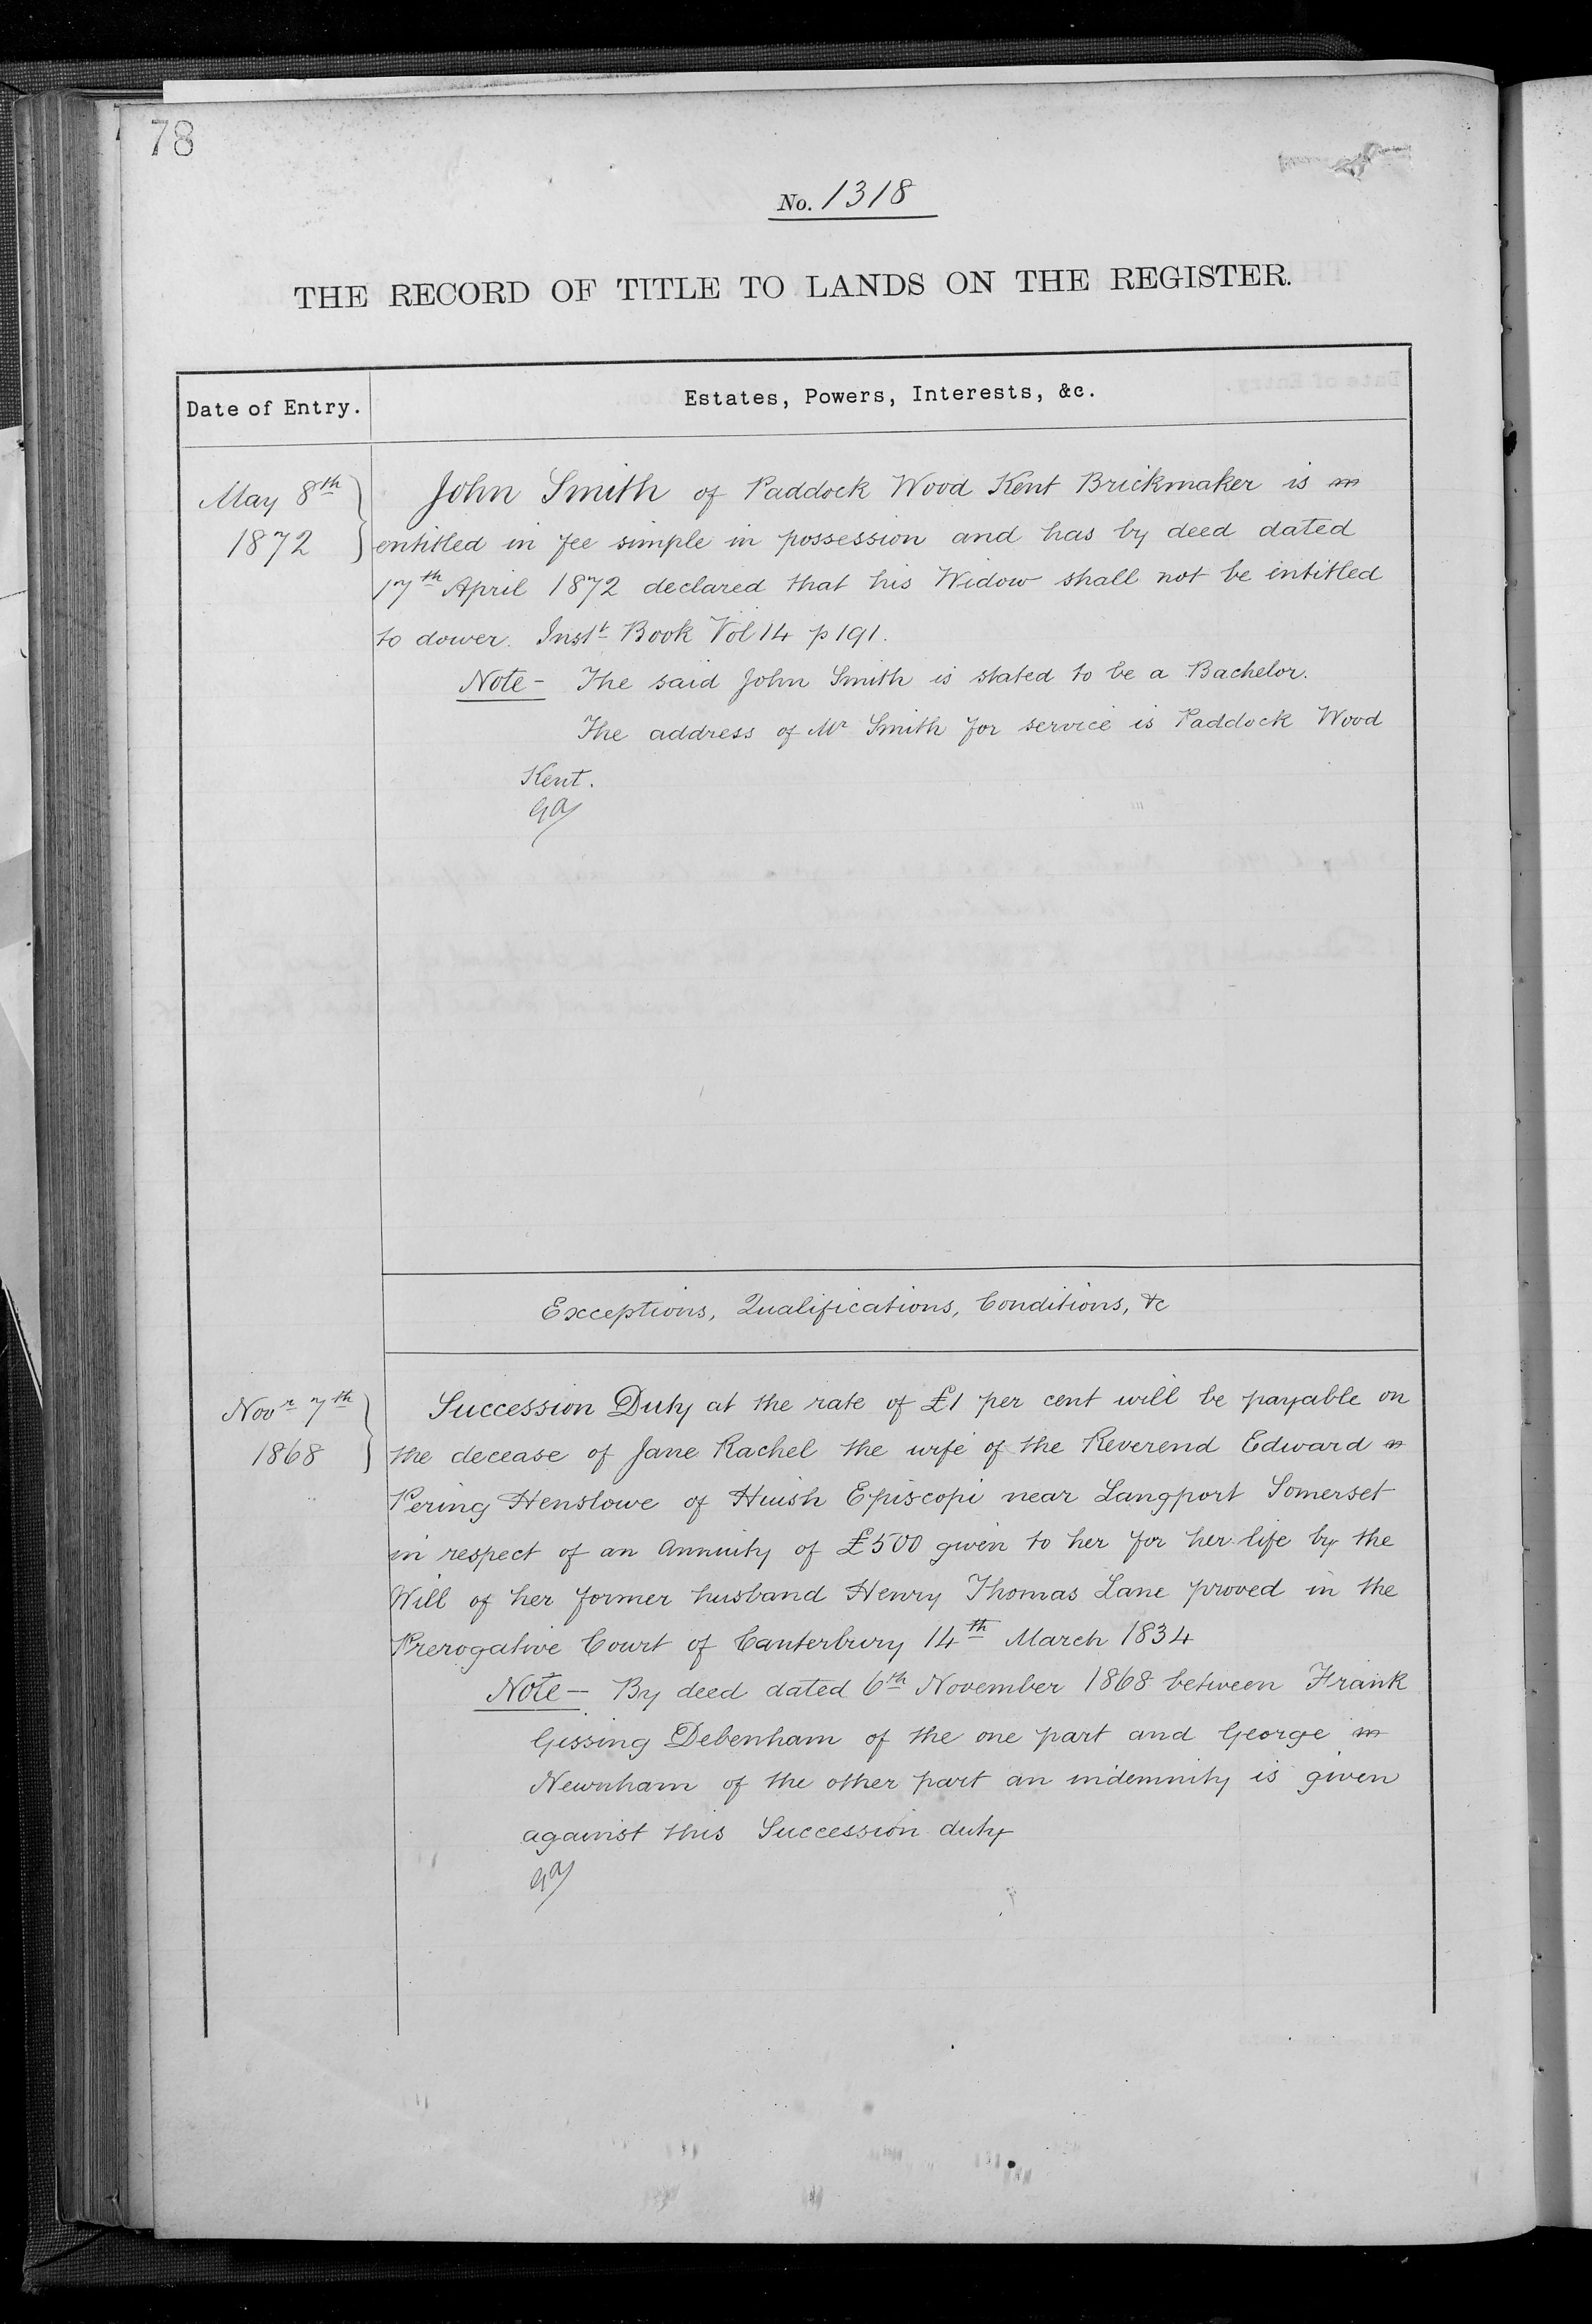 78
No. 1318
THE RECORD OF TITLE TO LANDS ON THE REGISTER.
Date of Entry.
Estates, Powers, Interests, &c.
May 8th
1872
John Smith of Paddock Wood Kent Brickmaker is
entitled in fee simple in possession and has by deed dated
17th April 1872 declared that his Widow shall not be intitled
to dower. Instt Book Vol 14 p 191.
Note - The said John Smith is stated to be a Bachelor.
The address of Mr Smith for service is Paddock Wood
Kent.
Exceptions, Qualifications, Conditions, &c
Novr 7th
1868
Succession Duty at the rate of £1 per cent will be payable on
the decease of Jane Rachel the wife of the Reverend Edward
Pering Henslowe of Huish Episcopi near Langport Somerset
in respect of an Annuity of £500 given to her for her life by the
Will of her former husband Henry Thomas Lane proved in the
Prerogative Court of Canterbury 14th March 1834
Note - By deed dated 6th November 1868 between Frank
Gissing Debenham of the one part and George
Newnham of the other part an indemnity is given
against this Succession duty